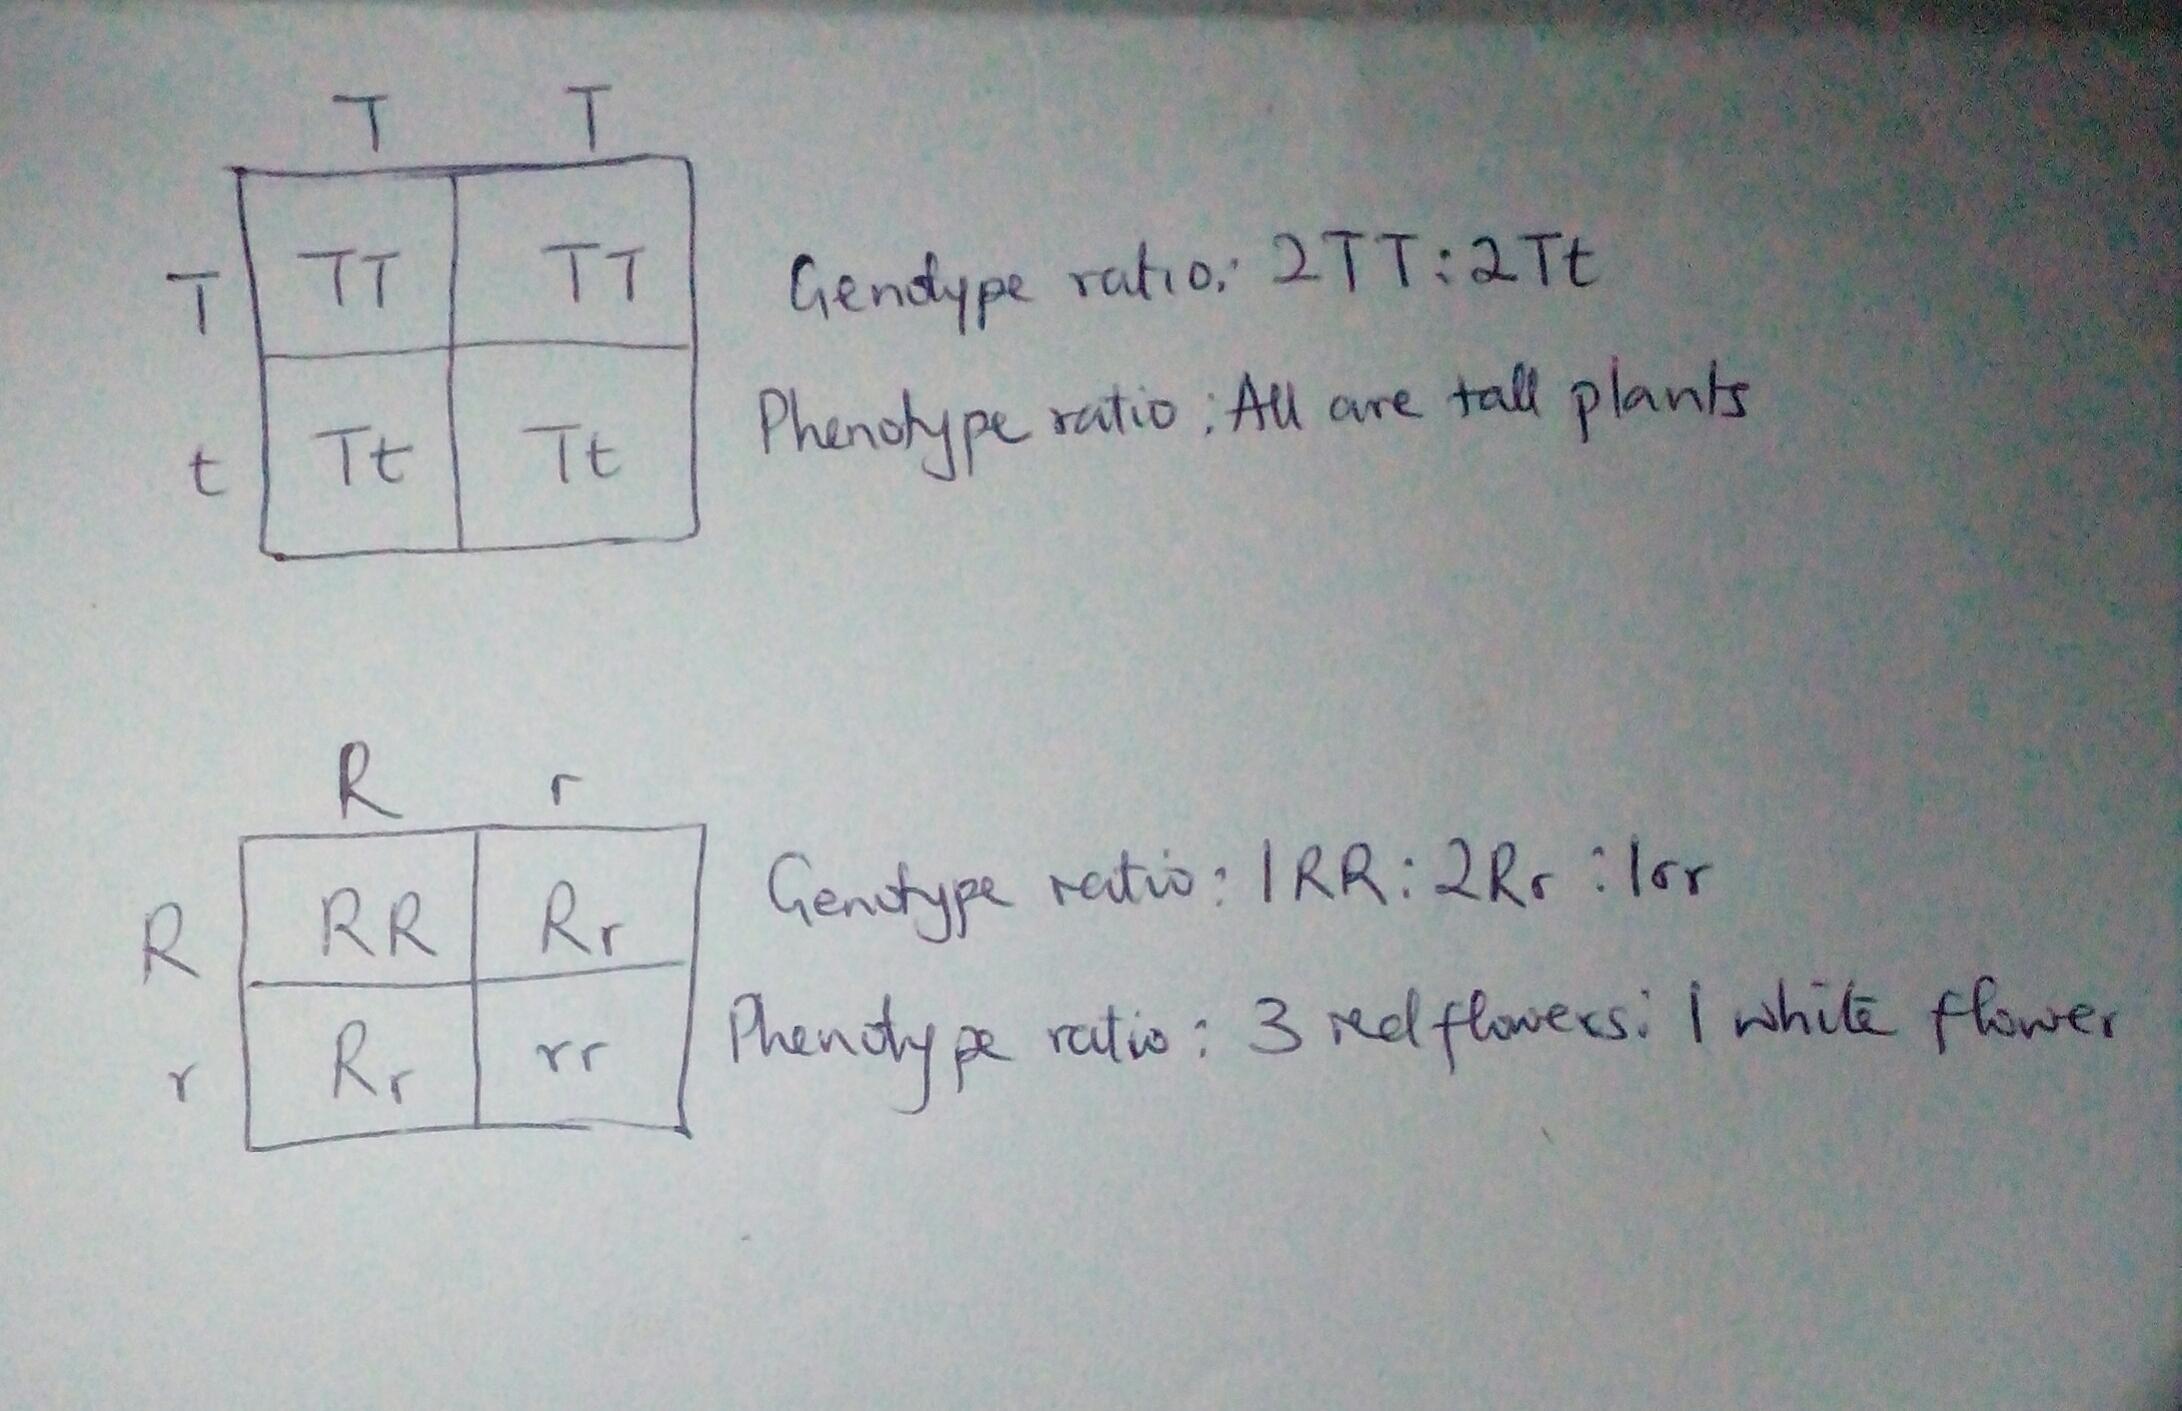 T T
T TT TT
Genotype ratio: 2TT:2Tt
t Tt Tt
Phenotype ratio: All are tall plants
R r
R RR Rr
Genotype ratio: 1RR:2Rr:1rr
r Rr rr
Phenotype ratio: 3 red flowers: 1 white flower